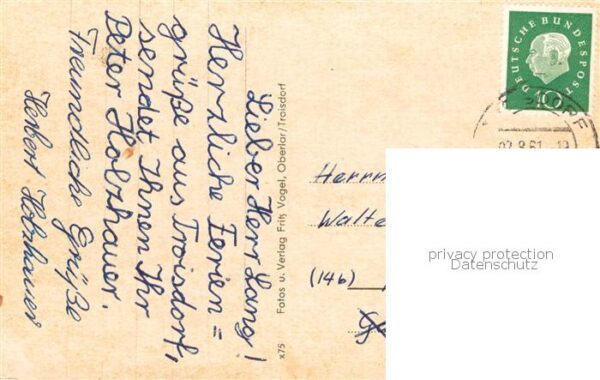 Lieber Herr Lang!
Herzliche Ferien=
grüße aus Troisdorf,
sendet Ihnen Ihr
Peter Holzhauer.
Freundliche Grüße
Herbert Holzhauer
x75
Fotos u. Verlag Fritz Vogel, Oberlar/Troisdorf
DEUTSCHE BUNDESPOST
10
Herrn
Walte
(14b)
privacy protection
Datenschutz